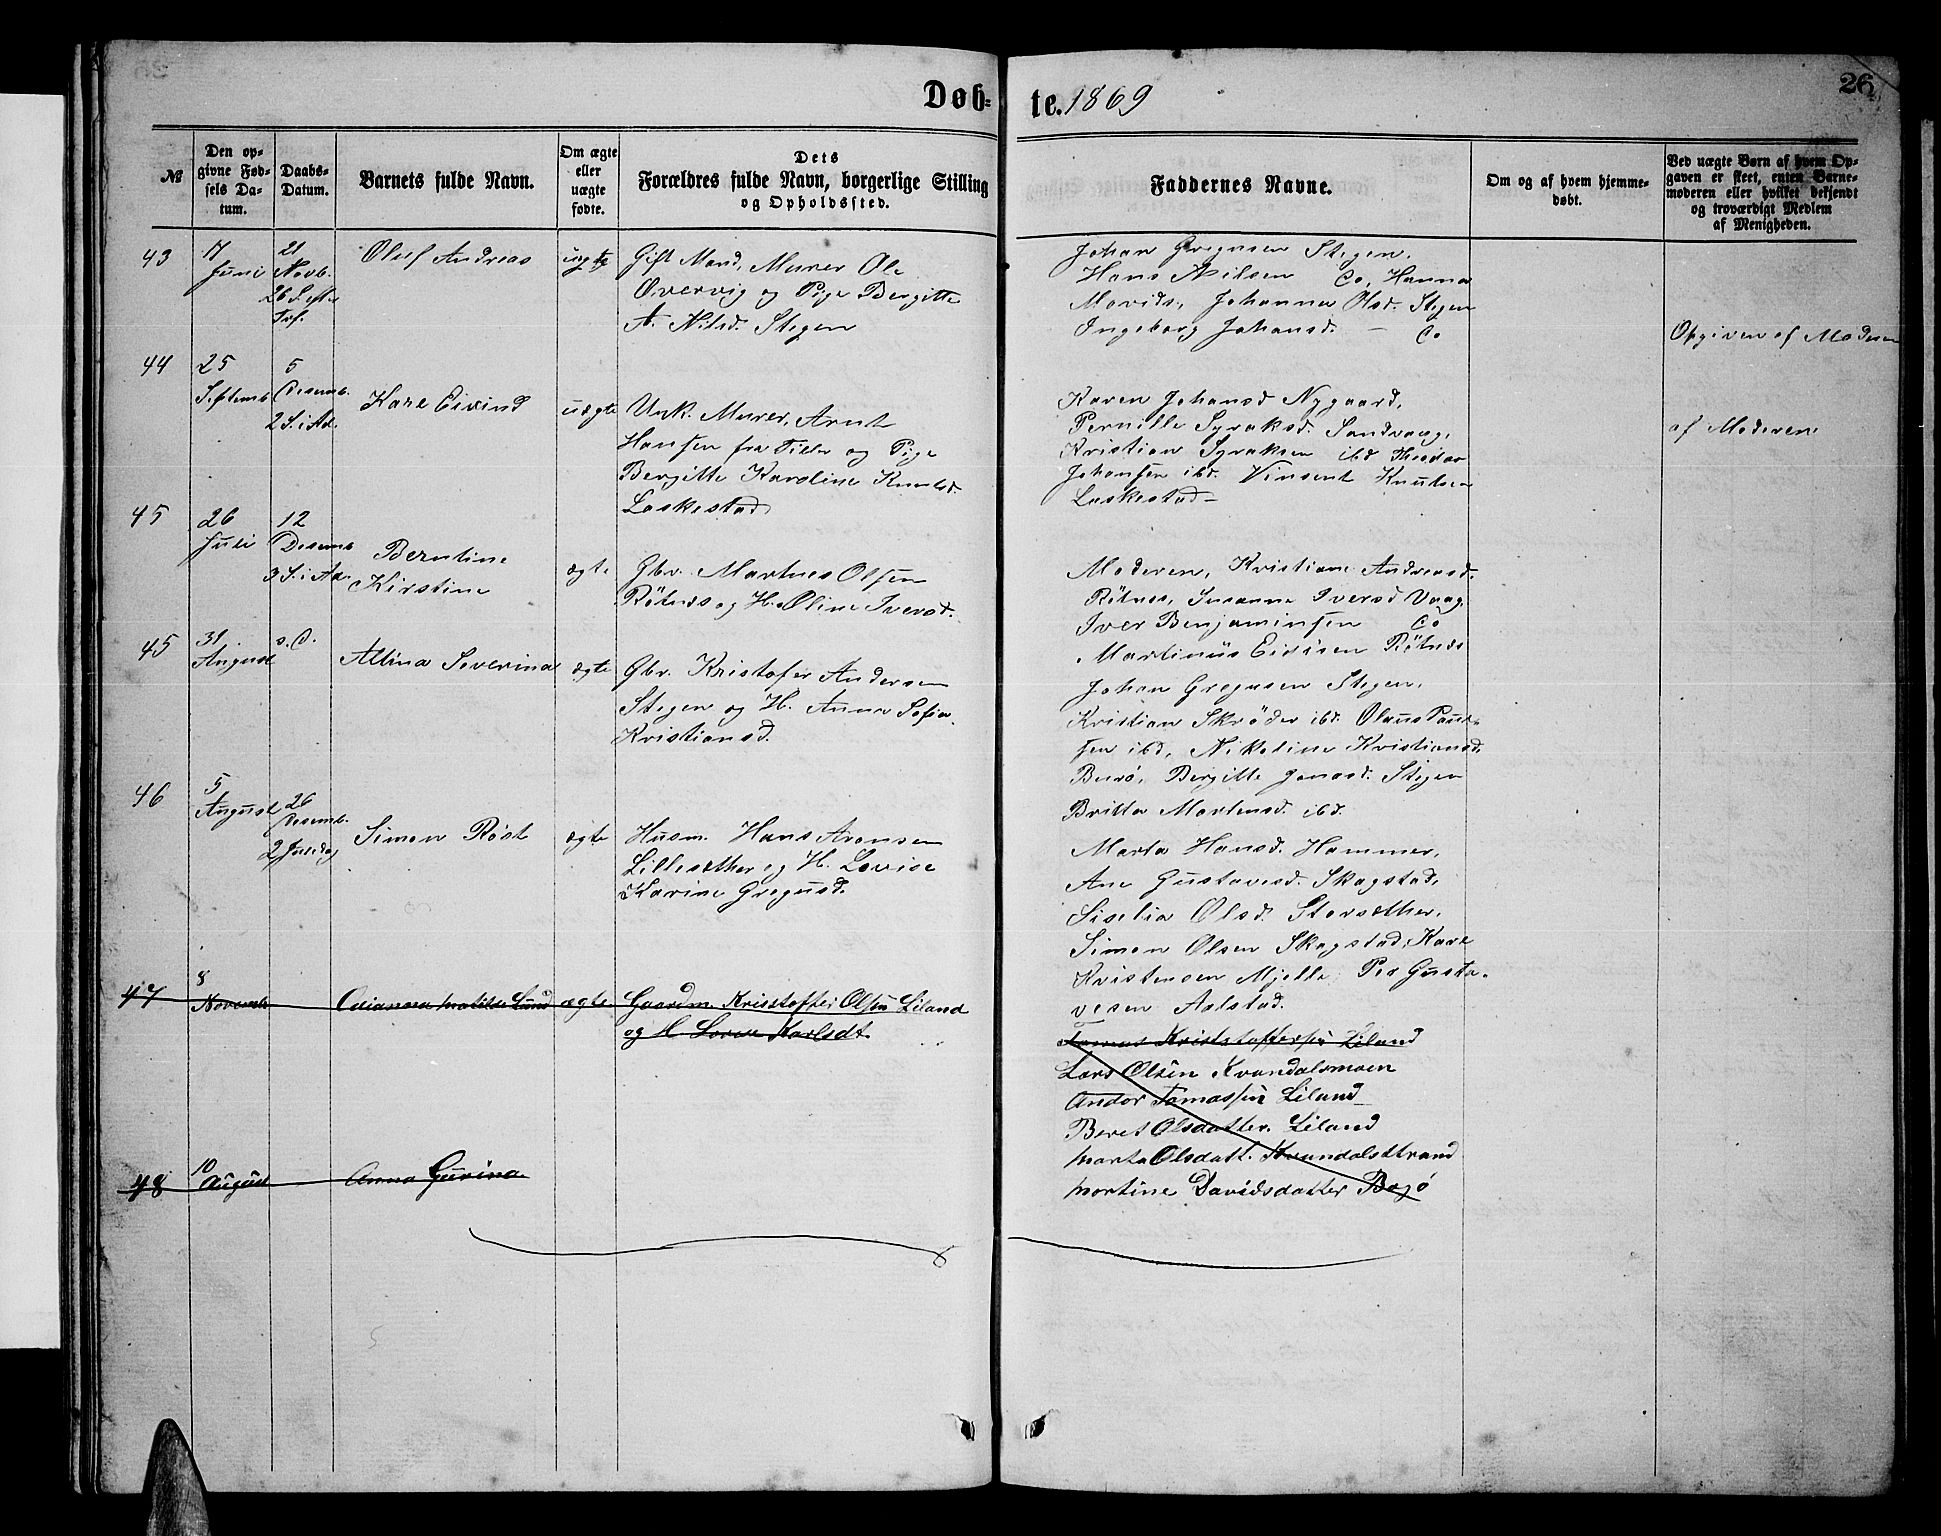 Døb-
te. 1869
26
№
Den op-
givne Fød-
sels Da-
tum.
Daabs-
Datum.
Barnets fulde Navn.
Om ægte
eller
uægte
fødte.
Dets
Forældres fulde Navn, borgerlige Stilling
og Opholdssted.
Faddernes Navne.
Om og af hvem hjemme-
døbt.
Ved uægte Børn af hvem Op-
gaven er skeet, enten Barne-
moderen eller hvilket bekjendt
og troværdigt Medlem
af Menigheden.
43
17
Juni
21
Novb.
26 S. efter
Tref.
Oluf Andreas
uægte
Gift Mand, Murer Ole
Overvig og Pige Bergitte
A. Nilsd. Stegen
Johan Gregusen Stegen,
Hans Nilsen Co, Hanna
Johanna Olsd. Stegen
Ingeborg Johansd. – Co
Opgiven af Moderen
44
25
Septemb
5
Desemb.
2 S. i Ad.
Karl Eivind
uægte
Unk. Murer, Arnt
Hansen fra Tiller og Pige
Bergitte Karoline Knutsd.
Laskestad
Karen Johansd Nygaard,
Pernille Syraksd. Sandvaag,
Kristian Syraksen ibd Theodor
Johansen ibd. Vinsent Knutsen
Laskestad –
af Moderen
45
26
Juli
12
Desemb
3 S. i Ad.
Berntine
Kirstine
ægte
Gbr. Martnus Olsen
Røtnes og H. Oline Iversd.
Moderen, Kristiane Andreasd.
Røtnes, Susanne Iversd Vaag,
Iver Benjaminsen Co
Martinus Røtnes
45
31
August
s. D.
Altina Severina
ægte
Gbr. Kristofer Andersen
Stegen og H. Anna Sofia
Kristiansd.
Johan Gregusen Stegen,
Kristian Skrøder ibd. Olaus Paul-
sen ibd, Nikoline Kristiansd.
Burø, Bergitte Jonasd. Stegen
Britta Mortensd. ibd.
46
5
August
26
Desemb.
2 Juledag
Simon Røst
ægte
Husm. Hans Aronsen
Lillesæther og H. Lovise
Karine Gregusd.
Marta Hansd. Hammer,
Ane Gustavesd. Skagstad,
Siselia Olsd. Storsæther,
Simon Olsen Skagstad, Karl
Kristensen Mjelle, Per Gusta-
vesen Aalstad.
47
8
Novemb
Caianna Matilde Lund
ægte
Gaardm Kristoffer Olsen Liland
og H Karlsdt.
Tomas Kristoffersen Liland
Lars Olsen Kvandalsmoen
Andor Tomassen Liland
Beret Olsdatter Liland
Marta Olsdatt. Kvandalsstrand
Martine Davidsdatter Bogø
48
10
August
Anna Gurina